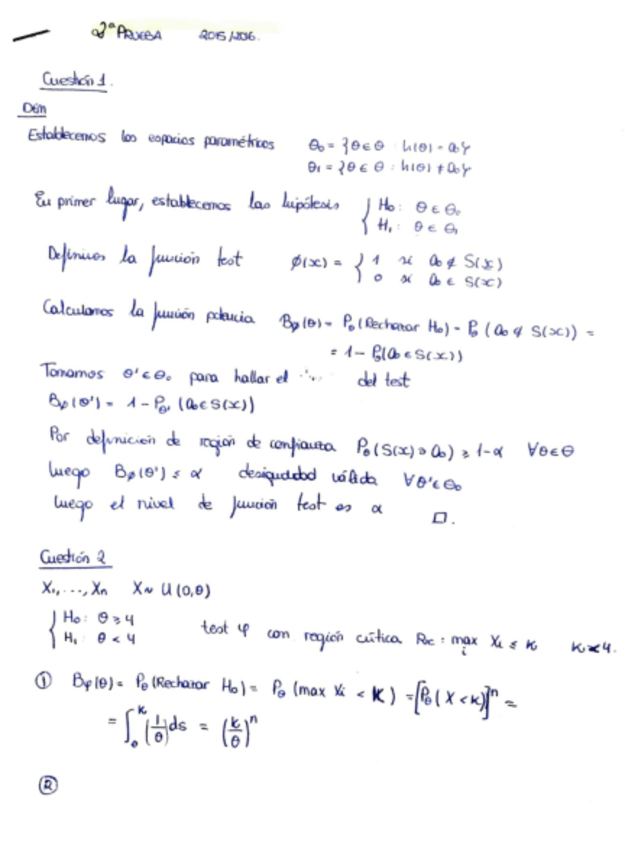 2ª PRUEBA 2015/2016.
Cuestión 1.
Dem
Establecemos los espacios paramétricos Θ₀ = {θ ∈ Θ : h(θ) = a₀}
Θ₁ = {θ ∈ Θ : h(θ) ≠ a₀}
En primer lugar, establecemos las hipótesis { H₀: θ ∈ Θ₀
H₁: θ ∈ Θ₁
Definimos la función test φ(x) = { 1 si a₀ ∉ S(x)
0 si a₀ ∈ S(x)
Calculamos la función potencia Bφ(θ) = Pθ(Rechazar H₀) = Pθ(a₀ ∉ S(x)) =
= 1 - Pθ(a₀ ∈ S(x))
Tomamos θ' ∈ Θ₀ para hallar el del test
Bφ(θ') = 1 - Pθ'(a₀ ∈ S(x))
Por definición de región de confianza Pθ(S(x) ∋ a₀) ≥ 1-α ∀θ ∈ Θ
luego Bφ(θ') ≤ α desigualdad válida ∀θ' ∈ Θ₀
luego el nivel de función test es α □.
Cuestión 2
X₁, ..., Xn X ~ U(0,θ)
{ H₀: θ ≥ 4
H₁: θ < 4 test φ con región crítica Rc: max Xi ≤ K K < 4.
i
① Bφ(θ) = Pθ(Rechazar H₀) = Pθ(max Xi < K) = [Pθ(X < K)]ⁿ =
= ∫₀ᴷ (1/θ) ds = (K/θ)ⁿ
②